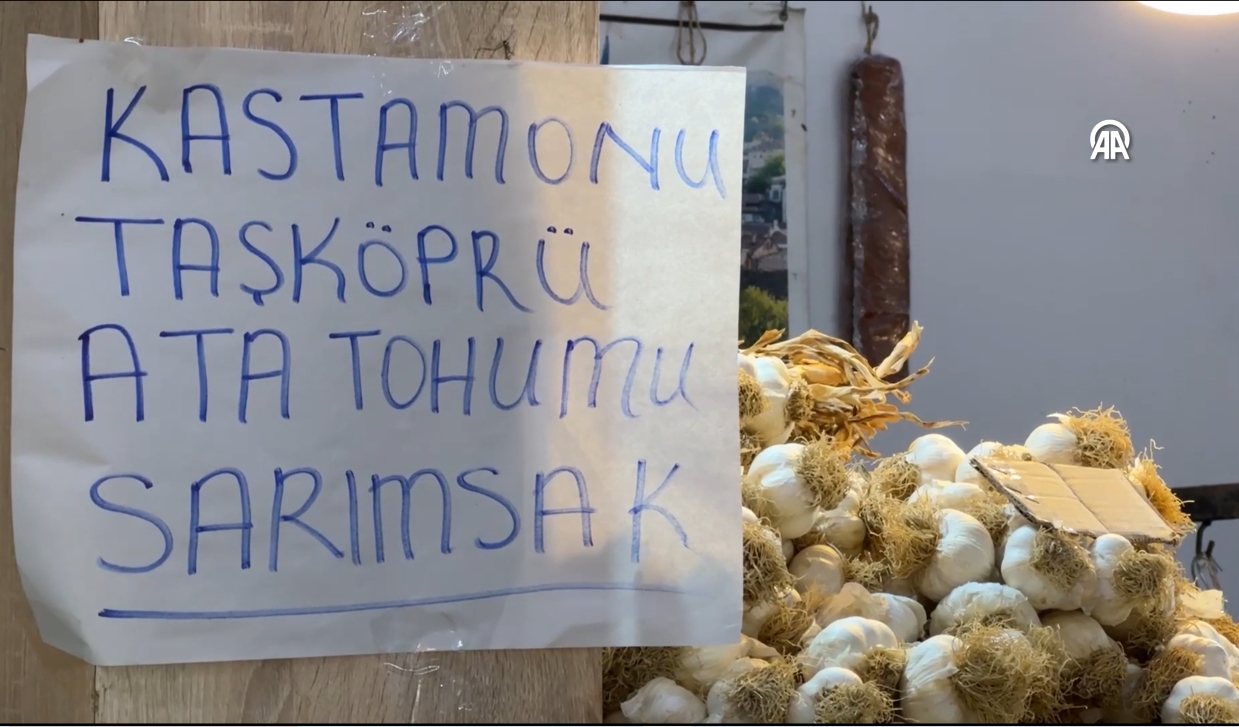 KASTAMONU
TAŞKÖPRÜ
ATA TOHUMU
SARIMSAK
AA